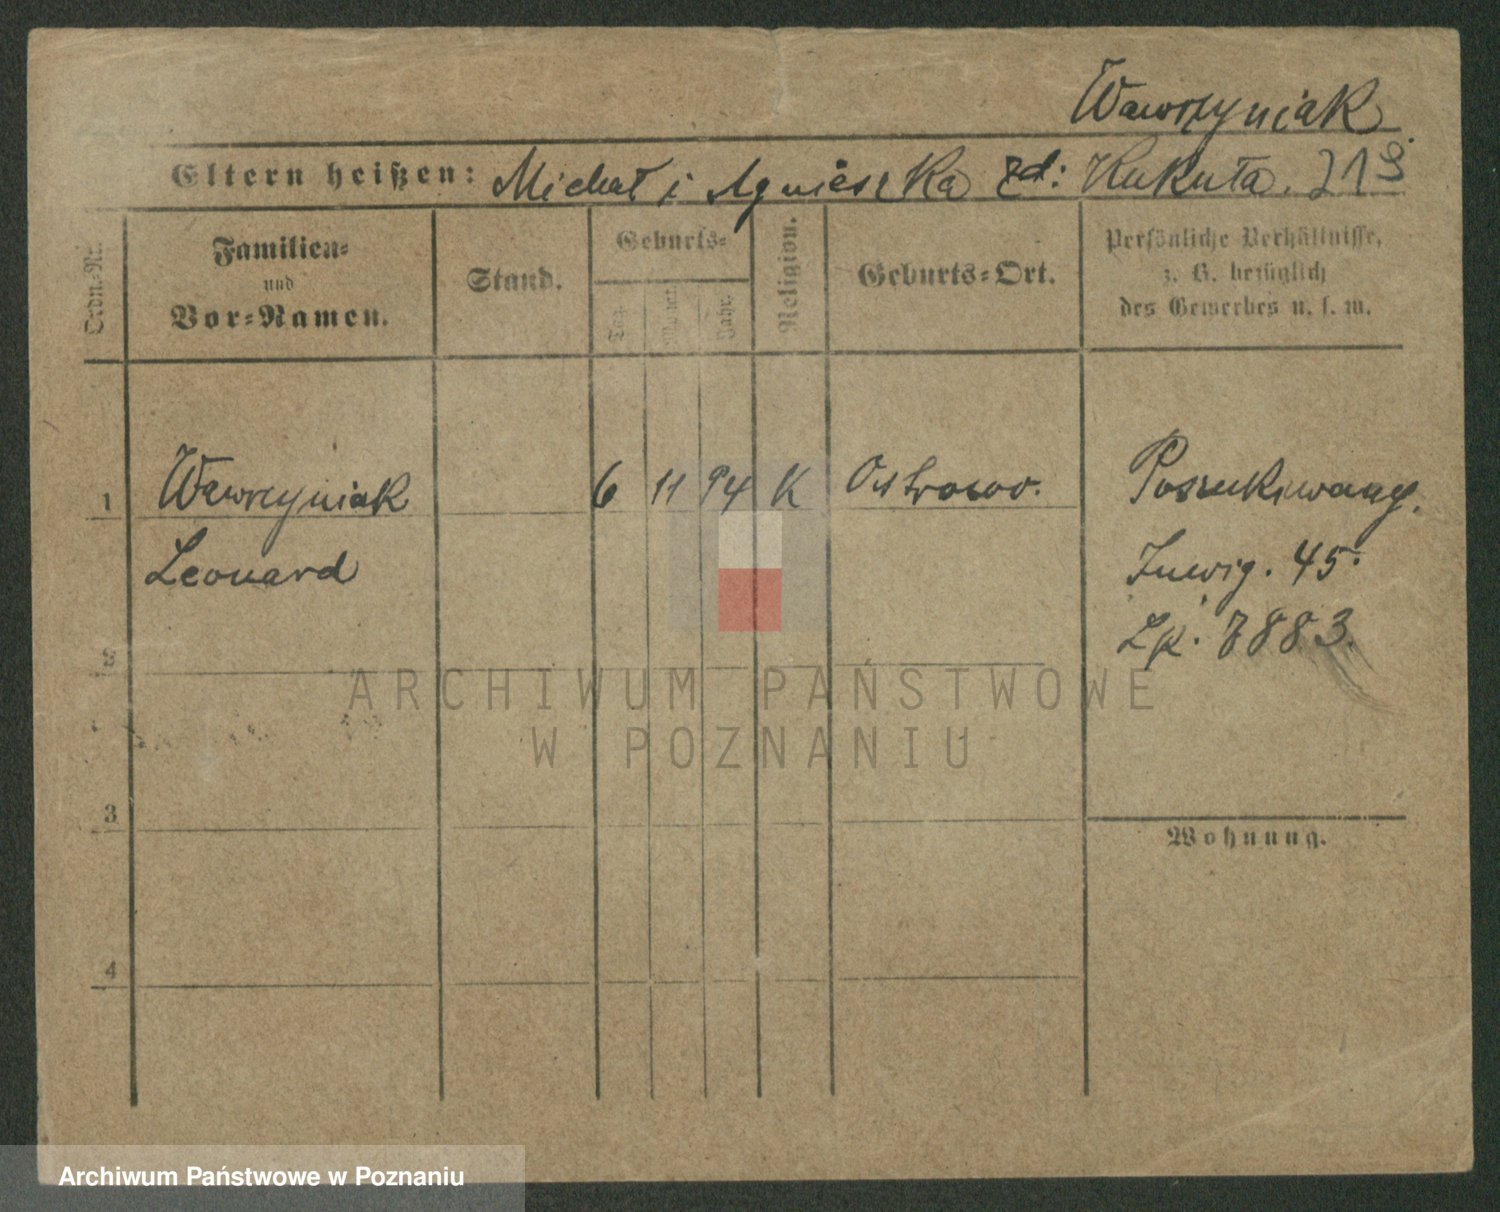 Wawrzyniak
Eltern heißen: Michał i Agnieszka zd: Kukuła.
Ordn.-Nr.
Familien-
und
Vor-Namen.
Stand.
Geburts-
Tag.
Monat.
Jahr.
Religion.
Geburts-Ort.
Persönliche Verhältnisse,
z. B. bezüglich
des Gewerbes u. s. w.
1 Wawrzyniak 6 11 94 K Ostrowo. Poszukiwany.
Leonard
Inwig. 45.
Lp. 7883.
2
3
Wohnung.
4
ARCHIWUM PAŃSTWOWE
W POZNANIU
Archiwum Państwowe w Poznaniu